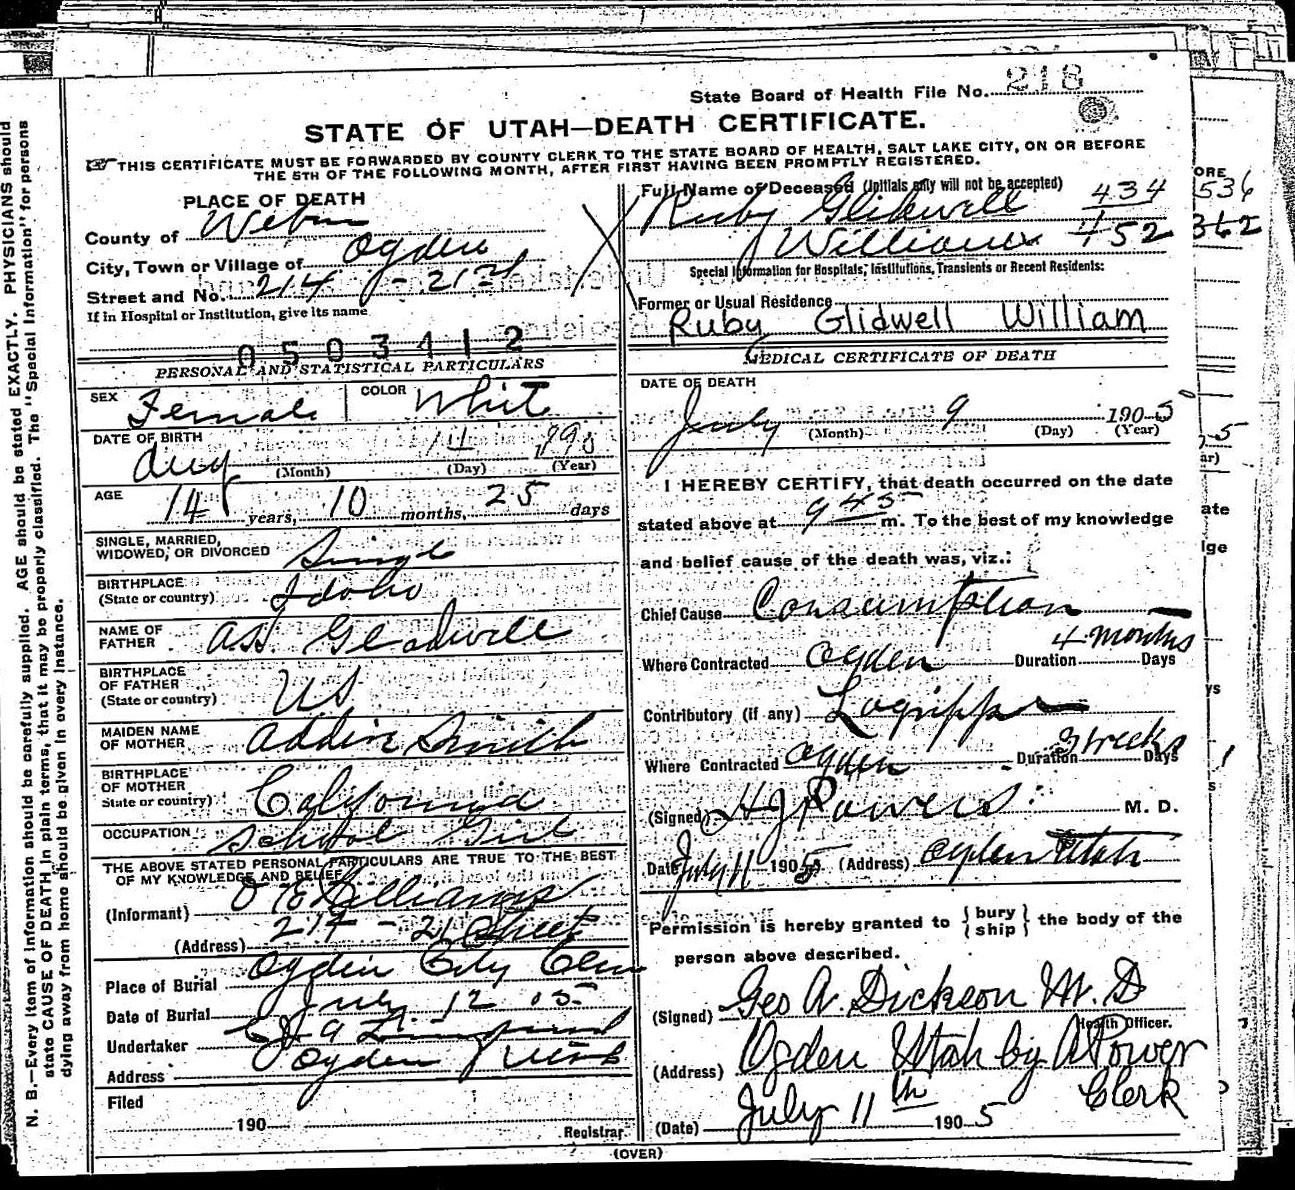 N. B.—Every item of information should be carefully supplied. AGE should be stated EXACTLY. PHYSICIANS should
state CAUSE OF DEATH in plain terms, that it may be properly classified. The "Special Information" for persons
dying away from home should be given in every instance.
State Board of Health File No. 218
STATE OF UTAH—DEATH CERTIFICATE.
THIS CERTIFICATE MUST BE FORWARDED BY COUNTY CLERK TO THE STATE BOARD OF HEALTH, SALT LAKE CITY, ON OR BEFORE
THE 5TH OF THE FOLLOWING MONTH, AFTER FIRST HAVING BEEN PROMPTLY REGISTERED.
PLACE OF DEATH
County of Weber
City, Town or Village of Ogden
Street and No. 214 - 21st
If in Hospital or Institution, give its name
0503412
PERSONAL AND STATISTICAL PARTICULARS
SEX Female COLOR White
DATE OF BIRTH
Aug 14 1890
(Month) (Day) (Year)
AGE
14 years, 10 months, 25 days
SINGLE, MARRIED,
WIDOWED, OR DIVORCED Single
BIRTHPLACE
(State or country) Idaho
NAME OF
FATHER Gladwell
BIRTHPLACE
OF FATHER
(State or country) US
MAIDEN NAME
OF MOTHER Addie Smith
BIRTHPLACE
OF MOTHER
State or country) California
OCCUPATION School Girl
THE ABOVE STATED PERSONAL PARTICULARS ARE TRUE TO THE BEST
OF MY KNOWLEDGE AND BELIEF
(Informant) Williams
(Address) 214 - 21 Street
Place of Burial Ogden City Cem
Date of Burial July 12 05
Undertaker
Address Ogden Utah
Filed
190
Registrar
Full Name of Deceased (Initials only will not be accepted)
Ruby Glidwell 434
Williams 452
Special Information for Hospitals, Institutions, Transients or Recent Residents:
Former or Usual Residence
Ruby Glidwell William
MEDICAL CERTIFICATE OF DEATH
DATE OF DEATH
July 9 1905
(Month) (Day) (Year)
I HEREBY CERTIFY, that death occurred on the date
stated above at 9 45 m. To the best of my knowledge
and belief cause of the death was, viz.:
Chief Cause Consumption
Where Contracted Ogden Duration 4 months Days
Contributory (if any) Lagrippe
Where Contracted Ogden Duration 3 weeks Days
(Signed) H J Powers M. D.
Date July 11 1905 (Address) Ogden Utah
Permission is hereby granted to { bury ship } the body of the
person above described.
(Signed) Geo A. Dickson M. D
Health Officer.
(Address) Ogden Utah by A Power
Clerk
(Date) July 11th 1905
(OVER)
ORE
536
362